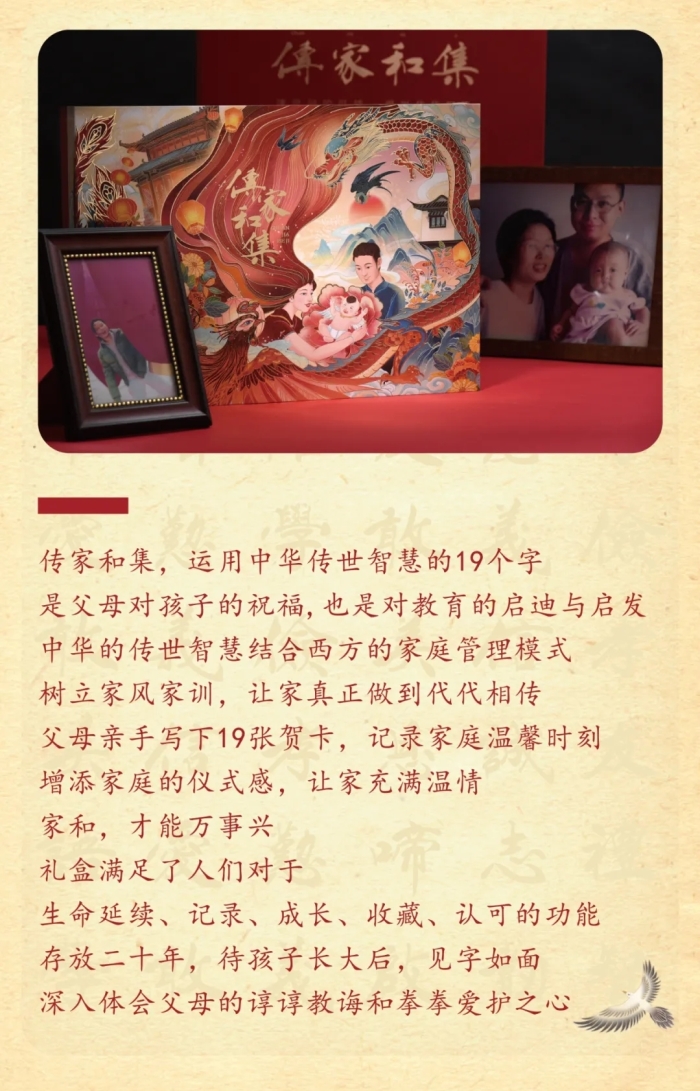 傳家和集
傳家
和集
传家和集，运用中华传世智慧的19个字
是父母对孩子的祝福，也是对教育的启迪与启发
中华的传世智慧结合西方的家庭管理模式
树立家风家训，让家真正做到代代相传
父母亲手写下19张贺卡，记录家庭温馨时刻
增添家庭的仪式感，让家充满温情
家和，才能万事兴
礼盒满足了人们对于
生命延续、记录、成长、收藏、认可的功能
存放二十年，待孩子长大后，见字如面
深入体会父母的谆谆教诲和拳拳爱护之心